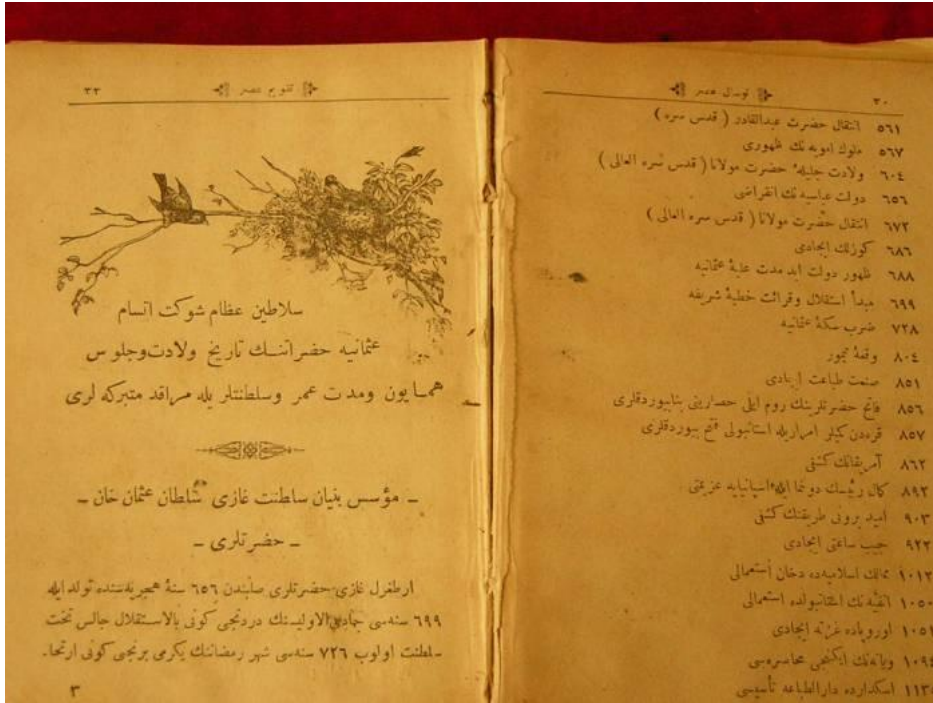 نوسال عصر
٣٠
٥٦١ انتقال حضرت عبدالقادر ( قدس سره )
٥٦٧ ملوك ايوبيه نك ظهورى
٦٠٤ ولادت جليلهٔ حضرت مولانا ( قدس سره العالى )
٦٥٦ دولت عباسيه نك انقراضى
٦٧٢ انتقال حضرت مولانا ( قدس سره العالى )
٦٨٦ كوزلك ايجادى
٦٨٨ ظهور دولت ابد مدت عليهٔ عثمانيه
٦٩٩ مبدأ استقلال وقرائت خطبهٔ شريفه
٧٢٨ ضرب سكهٔ عثمانيه
٨٠٤ وقعهٔ تيمور
٨٥١ صنعت طباعت ايجادى
٨٥٦ فاتح حضرتلرينك روم ايلى حصارينى بنا بيوردقلرى
٨٥٧ قره دن كميلر امراريله استانبولى فتح بيوردقلرى
٨٦٢ آمريقانك كشفى
٨٩٣ كمال رئيسك دوننما ايله اسپانيايه عزيمتى
٩٠٣ اميد برونى طريقنك كشفى
٩٢٢ جيب ساعتى ايجادى
١٠١٢ ممالك اسلاميه ده دخان استعمالى
١٠٥٠ انفيه نك استانبولده استعمالى
١٠٥١ اوروپاده غزته ايجادى
١٠٩٤ ويانه نك ايكنجى محاصره سى
١١٣٤ اسكدارده دار الطباعه تأسيسى
تقويم عصر
٣٣
سلاطين عظام شوكت اتسام
عثمانيه حضراتنك تاريخ ولادت وجلوس
همايون ومدت عمر وسلطنتلر يله مراقد متبركه لرى
ـ مؤسس بنيان سلطنت غازى سلطان عثمان خان ـ
ـ حضرتلرى ـ
ارطغرل غازى حضرتلرى صلبندن ٦٥٦ سنهٔ هجريه سنده تولد ايله
٦٩٩ سنه سى جمادى الاوليسنك دردنجى كونى بالاستقلال جالس تخت
سلطنت اولوب ٧٢٦ سنه سى شهر رمضاننك يكرمى برنجى كونى ارتحا ـ
٣